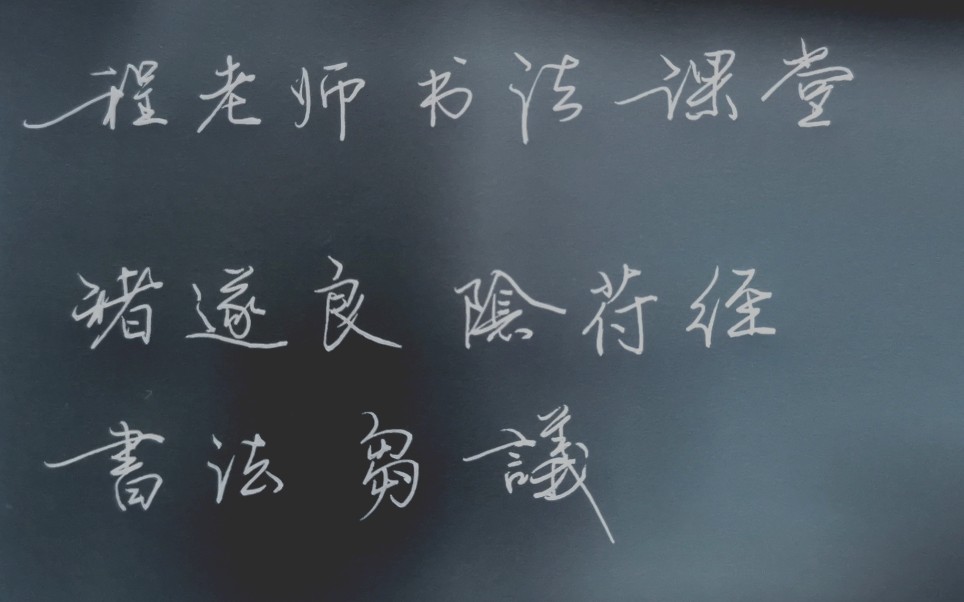 程老师书法课堂
褚遂良 陰符经
書法 芻議